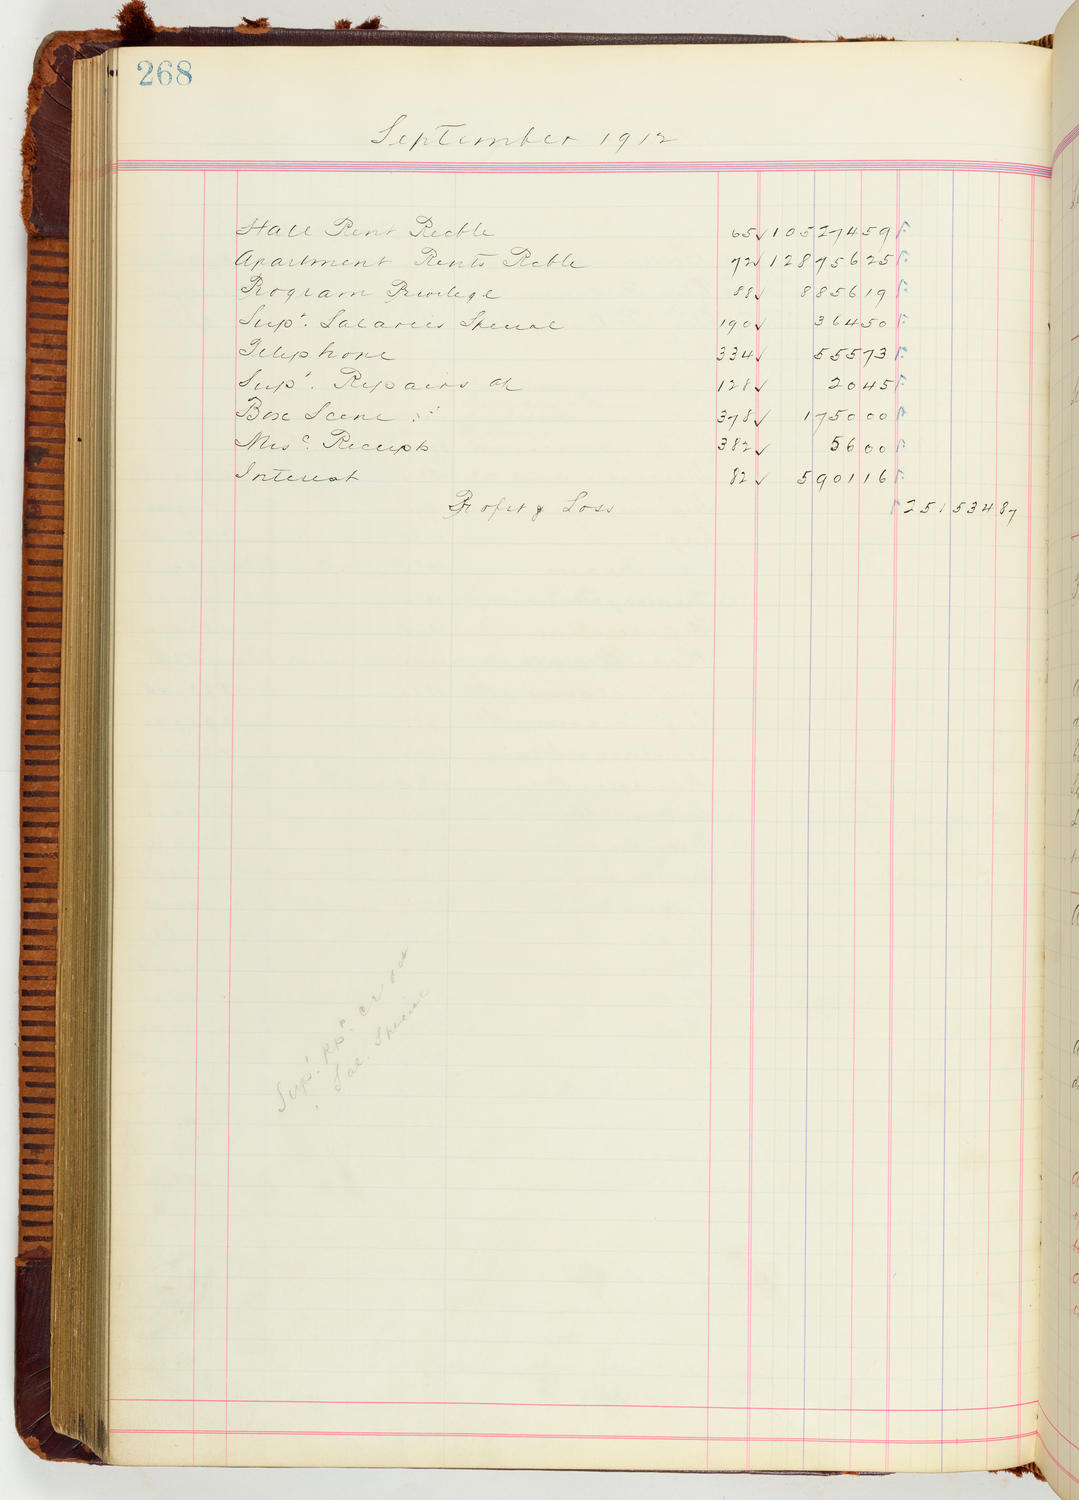 268
September 1912
Hall Rent Recble 65✓ 10527459
Apartment Rents Recble 72✓ 12875625
Program Privilege 88✓ 885619
Supt. Salaries Special 190✓ 36450
Telephone 334✓ 55573
Supt. Repairs a/c 128✓ 2045
Box Scene 378✓ 175000
Misc. Receipts 382✓ 5600
Interest 82✓ 590116
Profit & Loss 25153487
Supt. 
Sal. Special